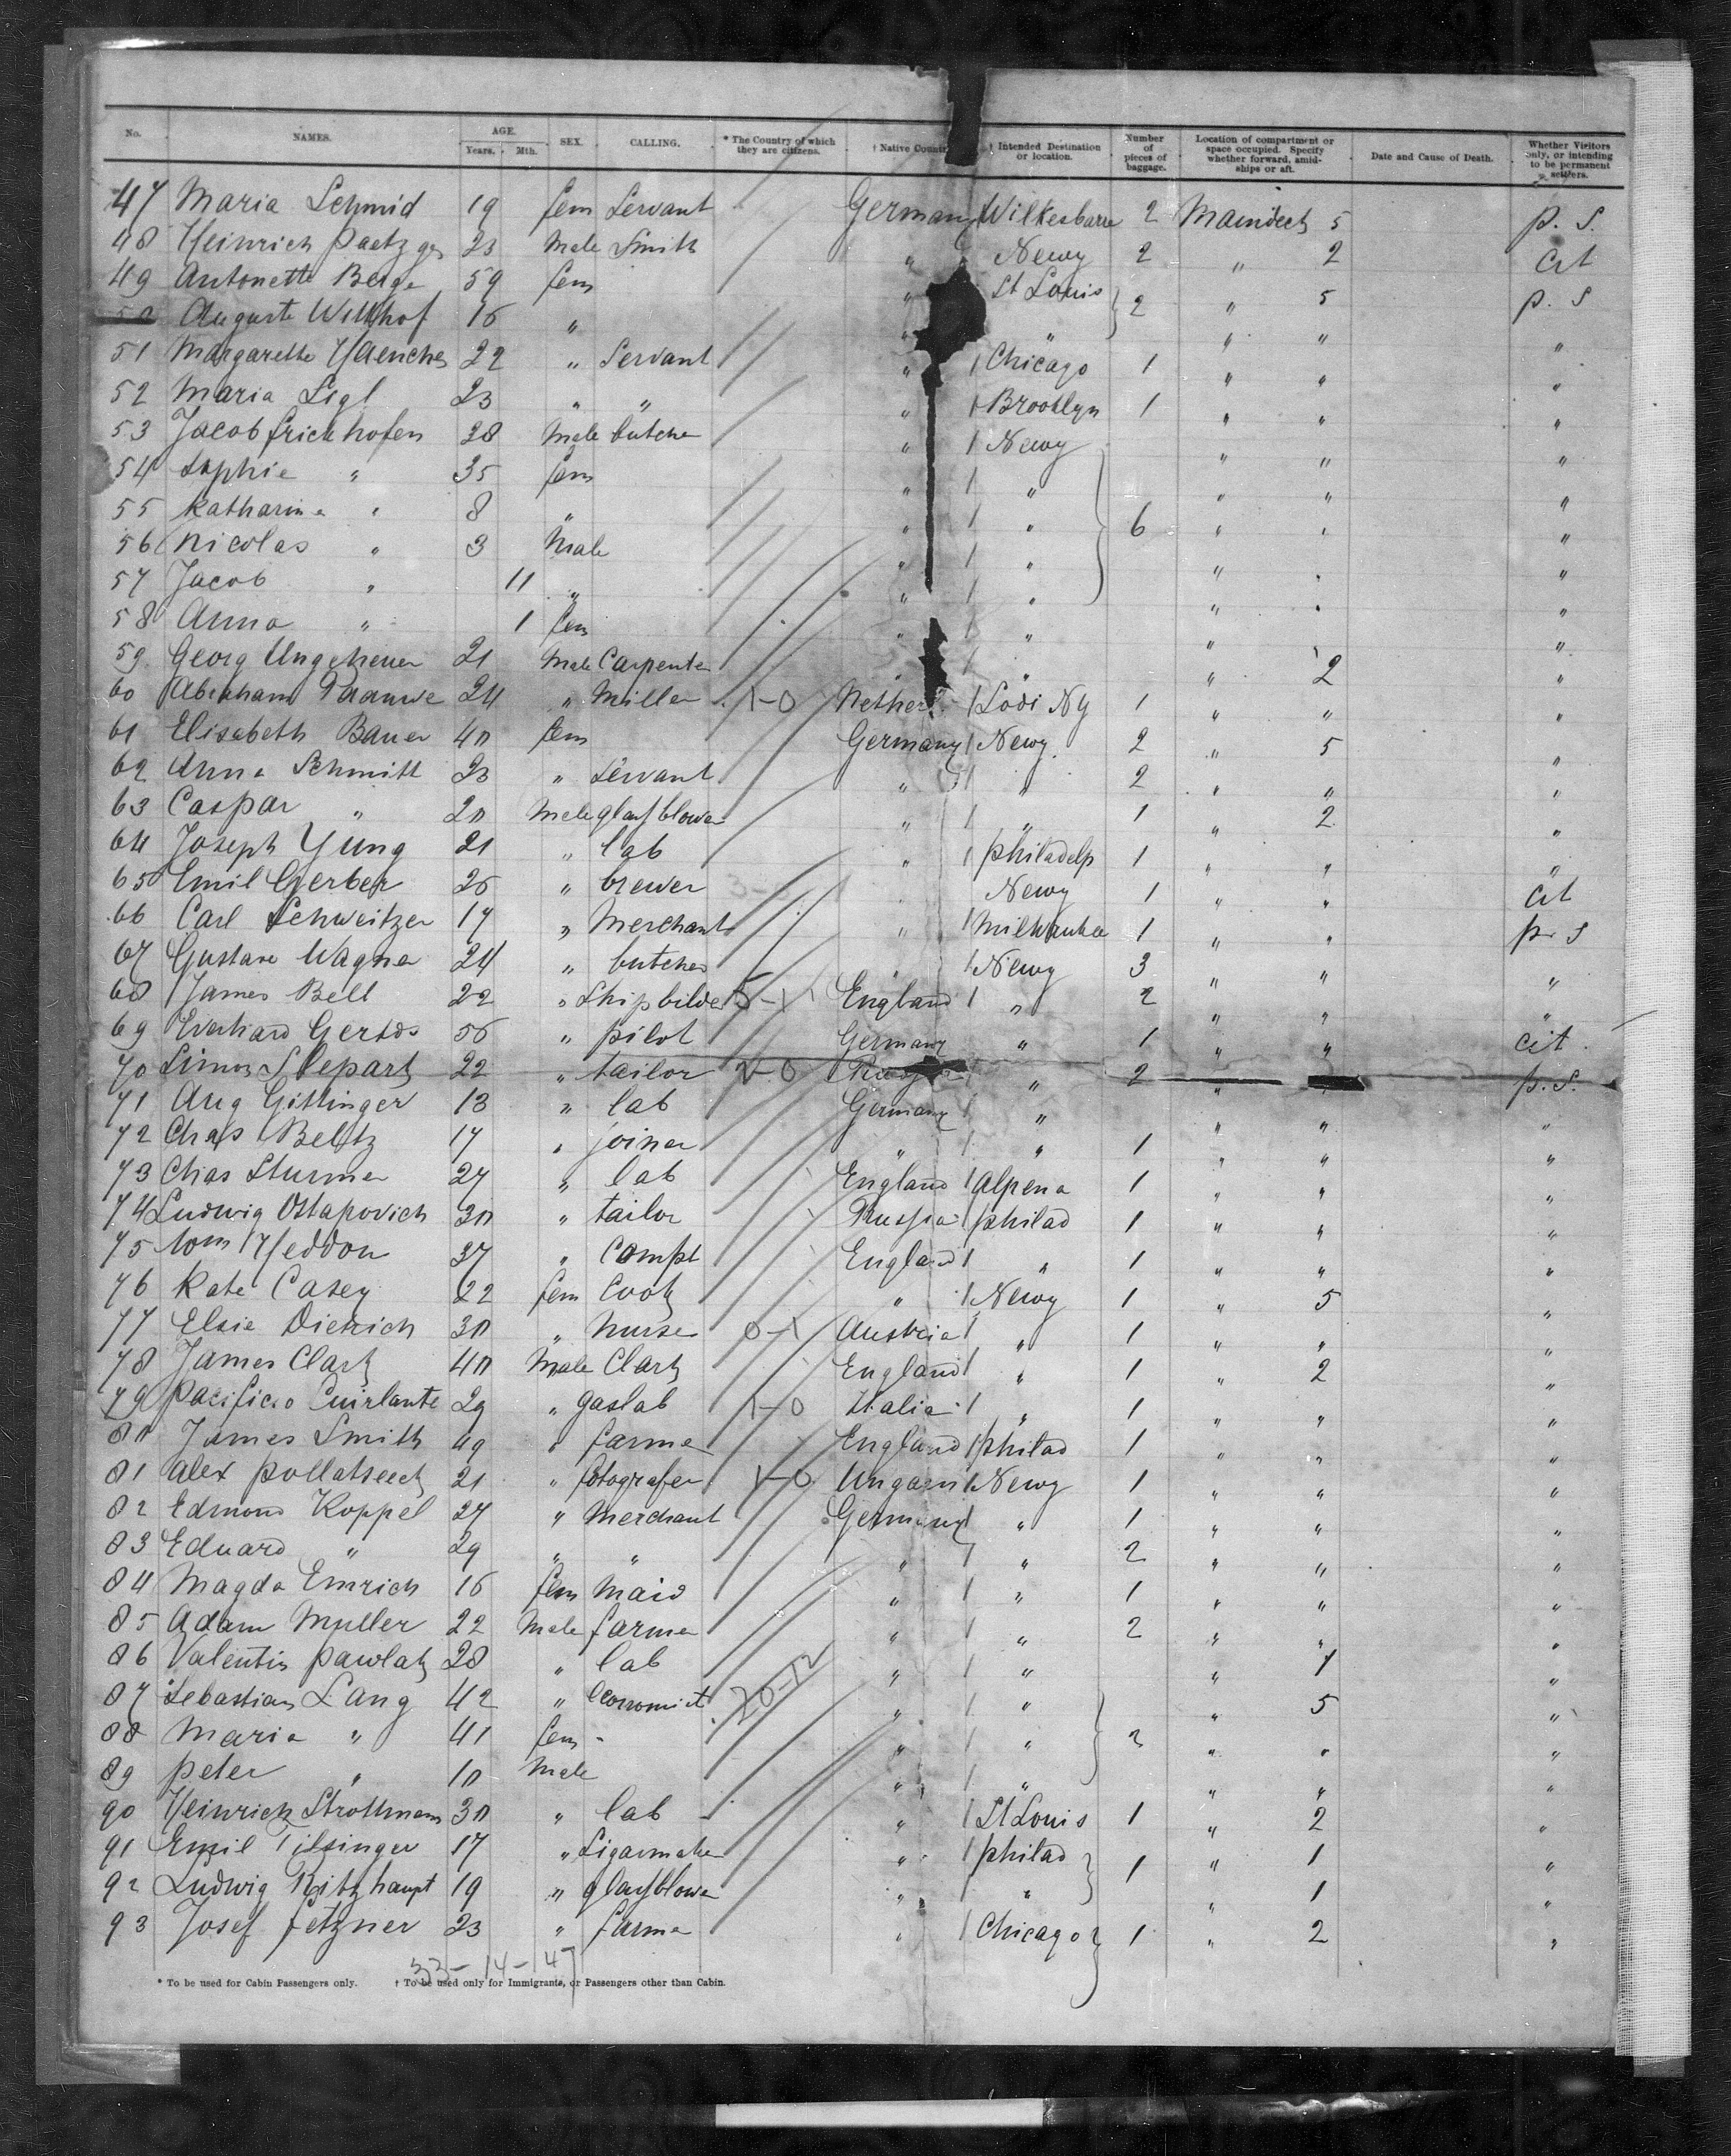 No. NAMES. AGE. Years. Mth. SEX. CALLING. * The Country of which they are citizens. † Native Country † Intended Destination or location. Number of pieces of baggage. Location of compartment or space occupied. Specify whether forward, amidships or aft. Date and Cause of Death. Whether Visitors only, or intending to be permanent settlers.
47 Maria Schmid 19 fem Servant Germany Wilkesbarre 2 Maindeck 5 p. S.
48 Heinrich 23 Male Smith " Newy 2 " 2 cit
49 Antonette Berge 59 fem " St Louis 2 " 5 p. S
50 Auguste Willhof 16 " " " " " "
51 Margarethe 22 " Servant " 1 Chicago 1 " " "
52 Maria Sigl 23 " " " 1 Brooklyn 1 " " "
53 Jacob frickhofen 28 Male butche " 1 Newy " " "
54 Sophie " 35 fem " 1 " " " "
55 Katharina " 8 " " 1 " 6 " " "
56 Nicolas " 3 Male " 1 " " " "
57 Jacob " 11 " " 1 " " " "
58 Anna " 1 fem " 1 " " " "
59 Georg Ungeheuer 21 Male Carpenter " 1 " " 2 "
60 Abraham 24 " Miller 1-0 Nether 1 Lodi NY 1 " " "
61 Elisabeth Bauer 40 fem Germany 1 Newy. 2 " 5 "
62 Anna Schmitt 23 " Servant " 1 " 2 " " "
63 Caspar " 20 Male glassblower " 1 " 1 " 2 "
64 Joseph Yung 21 " lab " 1 philadelp 1 " " "
65 Emil Gerber 26 " brewer " Newy 1 " " cit
66 Carl Schweitzer 17 " Merchant " 1 Milwaukee 1 " " p. S
67 Gustave Wagner 24 " butcher " 1 Newy 3 " " "
68 James Bell 22 " Shipbilder 5-1 England 1 " 2 " " "
69 Everhard Gerdds 56 " pilot Germany " 1 " " cit.
70 Simon 22 " tailor 2-0 Russia 1 " 2 " " p. S.
71 Aug Gittinger 13 " lab Germany 1 " " " "
72 Chas Beltz 17 " joiner " 1 " 1 " " "
73 Chas Sturmer 27 " lab England 1 Alpena 1 " " "
74 Ludwig Ostapovich 30 " tailor Russia 1 philad 1 " " "
75 Wm Heddon 37 " Compt England 1 " 1 " " "
76 Kate Casey 22 fem Cook " 1 Newy 1 " 5 "
77 Elsie Dietrich 30 " Nurse 0-1 Austria 1 " 1 " " "
78 James Clark 40 Male Clark England 1 " 1 " 2 "
79 Pacificio Cuirlante 29 " gaslab 1-0 Italia 1 " 1 " " "
80 James Smith 49 " farmer England 1 philad 1 " " "
81 Alex Pollatseck 21 " fotografer 1-0 Ungarn 1 Newy 1 " " "
82 Edmond Koppel 27 " Merchant Germany 1 " 1 " " "
83 Eduard " 29 " " " 1 " 2 " " "
84 Magda Emrich 16 fem Maid " 1 " 1 " " "
85 Adam Muller 22 Male farmer " 1 " 2 " " "
86 Valentin Pawlak 28 " lab " 1 " " 1 "
87 Sebastian Lang 42 " economist 20-12 " 1 " " 5 "
88 Maria " 41 fem " 1 " 2 " " "
89 Peter " 10 Male " 1 " " " "
90 Heinrich Strothmann 30 " lab " 1 St Louis 1 " 2 "
91 Emil 17 " Sigarmaker " 1 philad 1 " 1 "
92 Ludwig Ritzhaupt 19 " glassblower " 1 " " 1 "
93 Josef Fetzner 23 " farmer " 1 Chicago 1 " 2 "
33-14-47
* To be used for Cabin Passengers only. † To be used only for Immigrants, or Passengers other than Cabin.